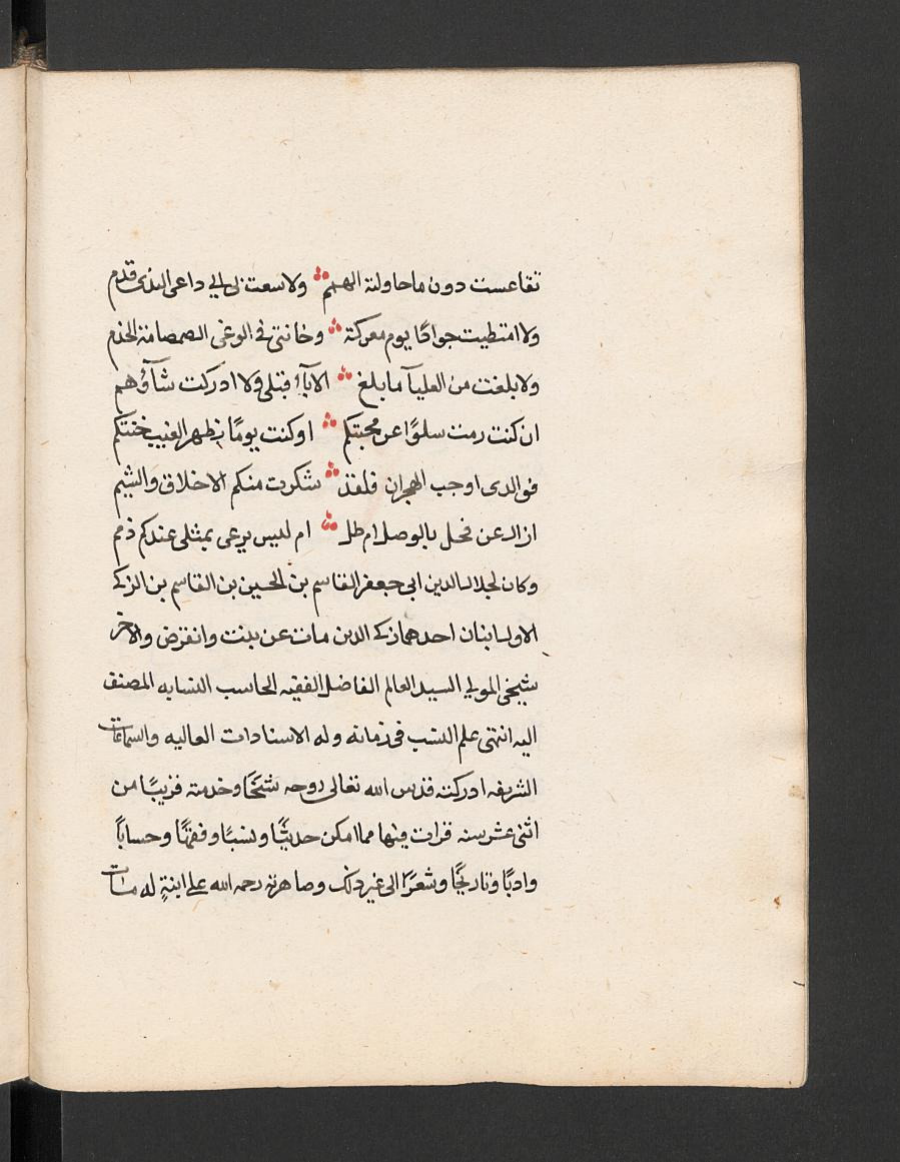 تقاعست دون ما حاولته الهمم ۞ ولا سعت بى الى داعى الندى قدم
ولا امتطيت جوادًا يوم معركة ۞ وخانتى فى الوغى الصمصامة الخذم
ولا بلغت من العليآ ما بلغ ۞ الابآء قبلى ولا ادركت شآؤهم
ان كنت رمت سلوًا عن محبتكم ۞ او كنت يومًا بظهر الغيب خنتكم
فو الدى اوجب الهجران فلقد ۞ شكرت منكم الاخلاق والشيم
ام ليس يرعى بمثلى عندكم ذمم
وكان لجلال الدين ابى جعفر القاسم بن الحسين بن القاسم بن الزكى
الاول ابنان احدهما زكى الدين مات عن بنت وانقرض والآخر
شيخى المولى السيد العالم الفاضل الفقيه الحاسب النسابه المصنف
اليه انتهى علم النسب فى زمانه وله الاسنادات العاليه والسماعات
الشريفه ادركته قدس الله تعالى روحه شيخًا وخدمته قريبًا من
اثنى عشر سنه قرات فيها مما امكن حديثًا ونسبًا وفقهًا وحسابًا
وادبًا وتاريخًا وشعرًا الى غير ذلك وصاهرته رحمه الله على ابنةٍ له مات